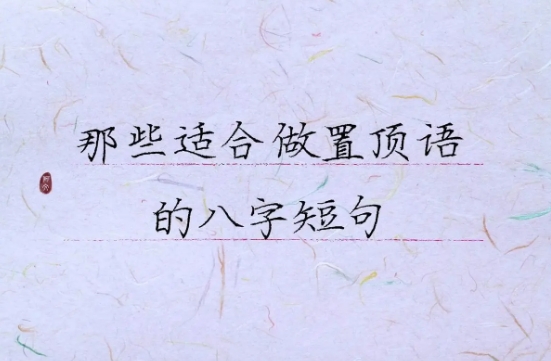 那些适合做置顶语
的八字短句